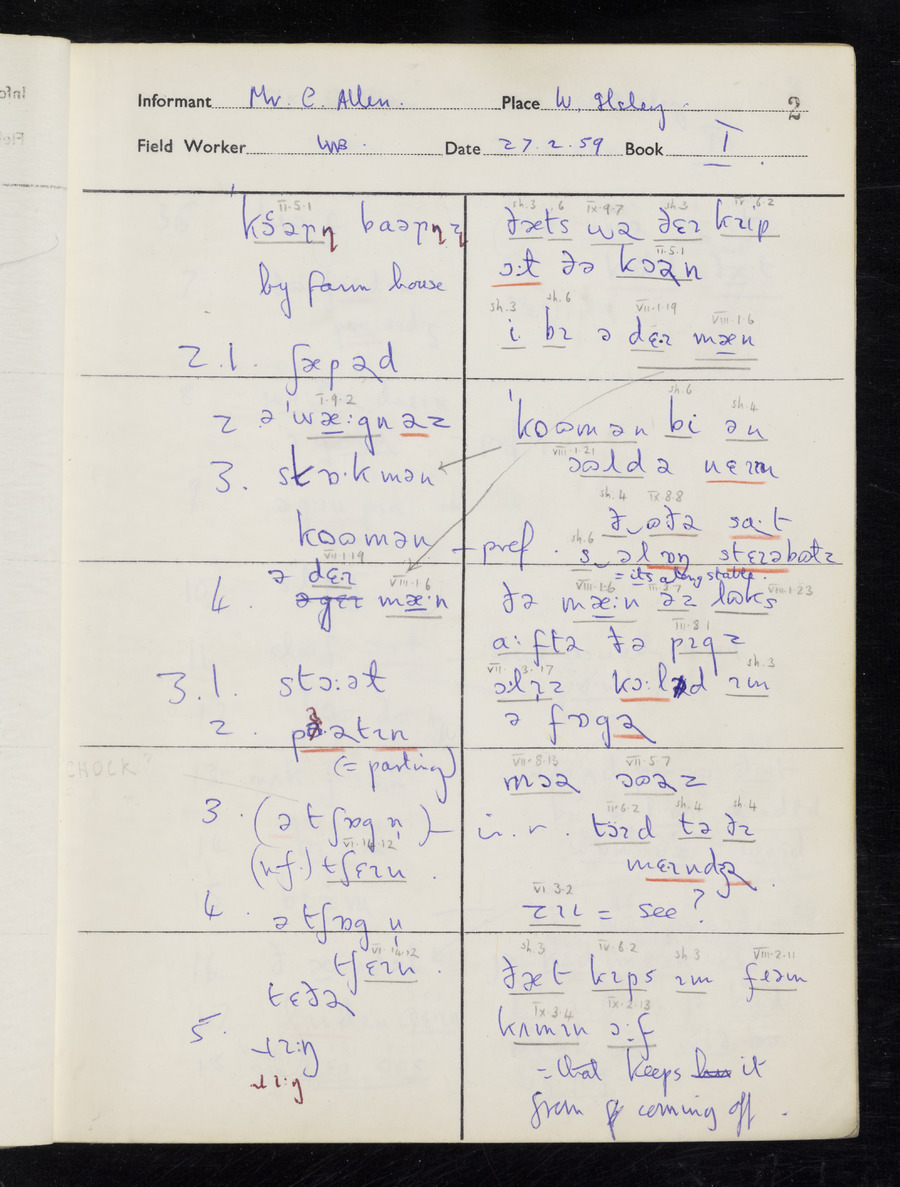 Informant Mr. C. Allen. Place W. Ilsley. 2
Field Worker WB. Date 27.2.59 Book I
ii.5.1
by farm house
2.1. ʃæpəd
I.9.2
2 ə'wæ:gnəz
3. stɒ·kmən
kʊʊmən
VII.1.19
VIII.1.6
4. ə dɛɪ mæ:n
3.1. stɔ:ət
2.
(= parting)
CHOCK
3. (ə tʃɒg n̩)
VI.14.12
(n.f.) tʃɛɪn.
4. ə tʃɒg n̩
VI.14.12
tʃɛɪn.
tɛðə
5.
sh.3 .6 IX.9.7 sh.3 IV.6.2
ðæts wə ðɛɪ kɪɪp
II.5.1
ɔ:t ðə kɔən
sh.3 sh.6 VII.1.19 VIII.1.6
i. bɪ ə dɛɪ mæn
sh.6 sh.4
'kʊʊmən bi ən
VIII.1.21
nɛɪm
sh.4 IX.8.8
sa:t
– pref. sh.6
= its along stable.
VIII.1.6 VIII.1.23
ðə mæ:n əz lʊks
III.8.1
a:ftə ðə pɪgz
VII.3.17 sh.3
kɔ:ləd ɪm
ə fɒgə
VII.8.13 VII.5.7
II.6.2 sh.4 sh.4
i.r. tɔɪd tə ðɪ
mɛɪndʒə.
VI 3.2
zɪɪ = see?
sh.3 IV.6.2 sh.3 VIII.2.11
ðæt kɪps ɪm fɛəm
IX.3.4 IX.2.13
kʌmɪn ɔ:f
= that keeps it
from coming off.